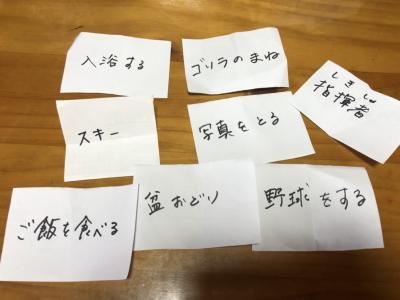 入浴する
ゴリラのまね
しきしゃ
指揮者
スキー
写真をとる
ご飯を食べる
盆おどり
野球をする